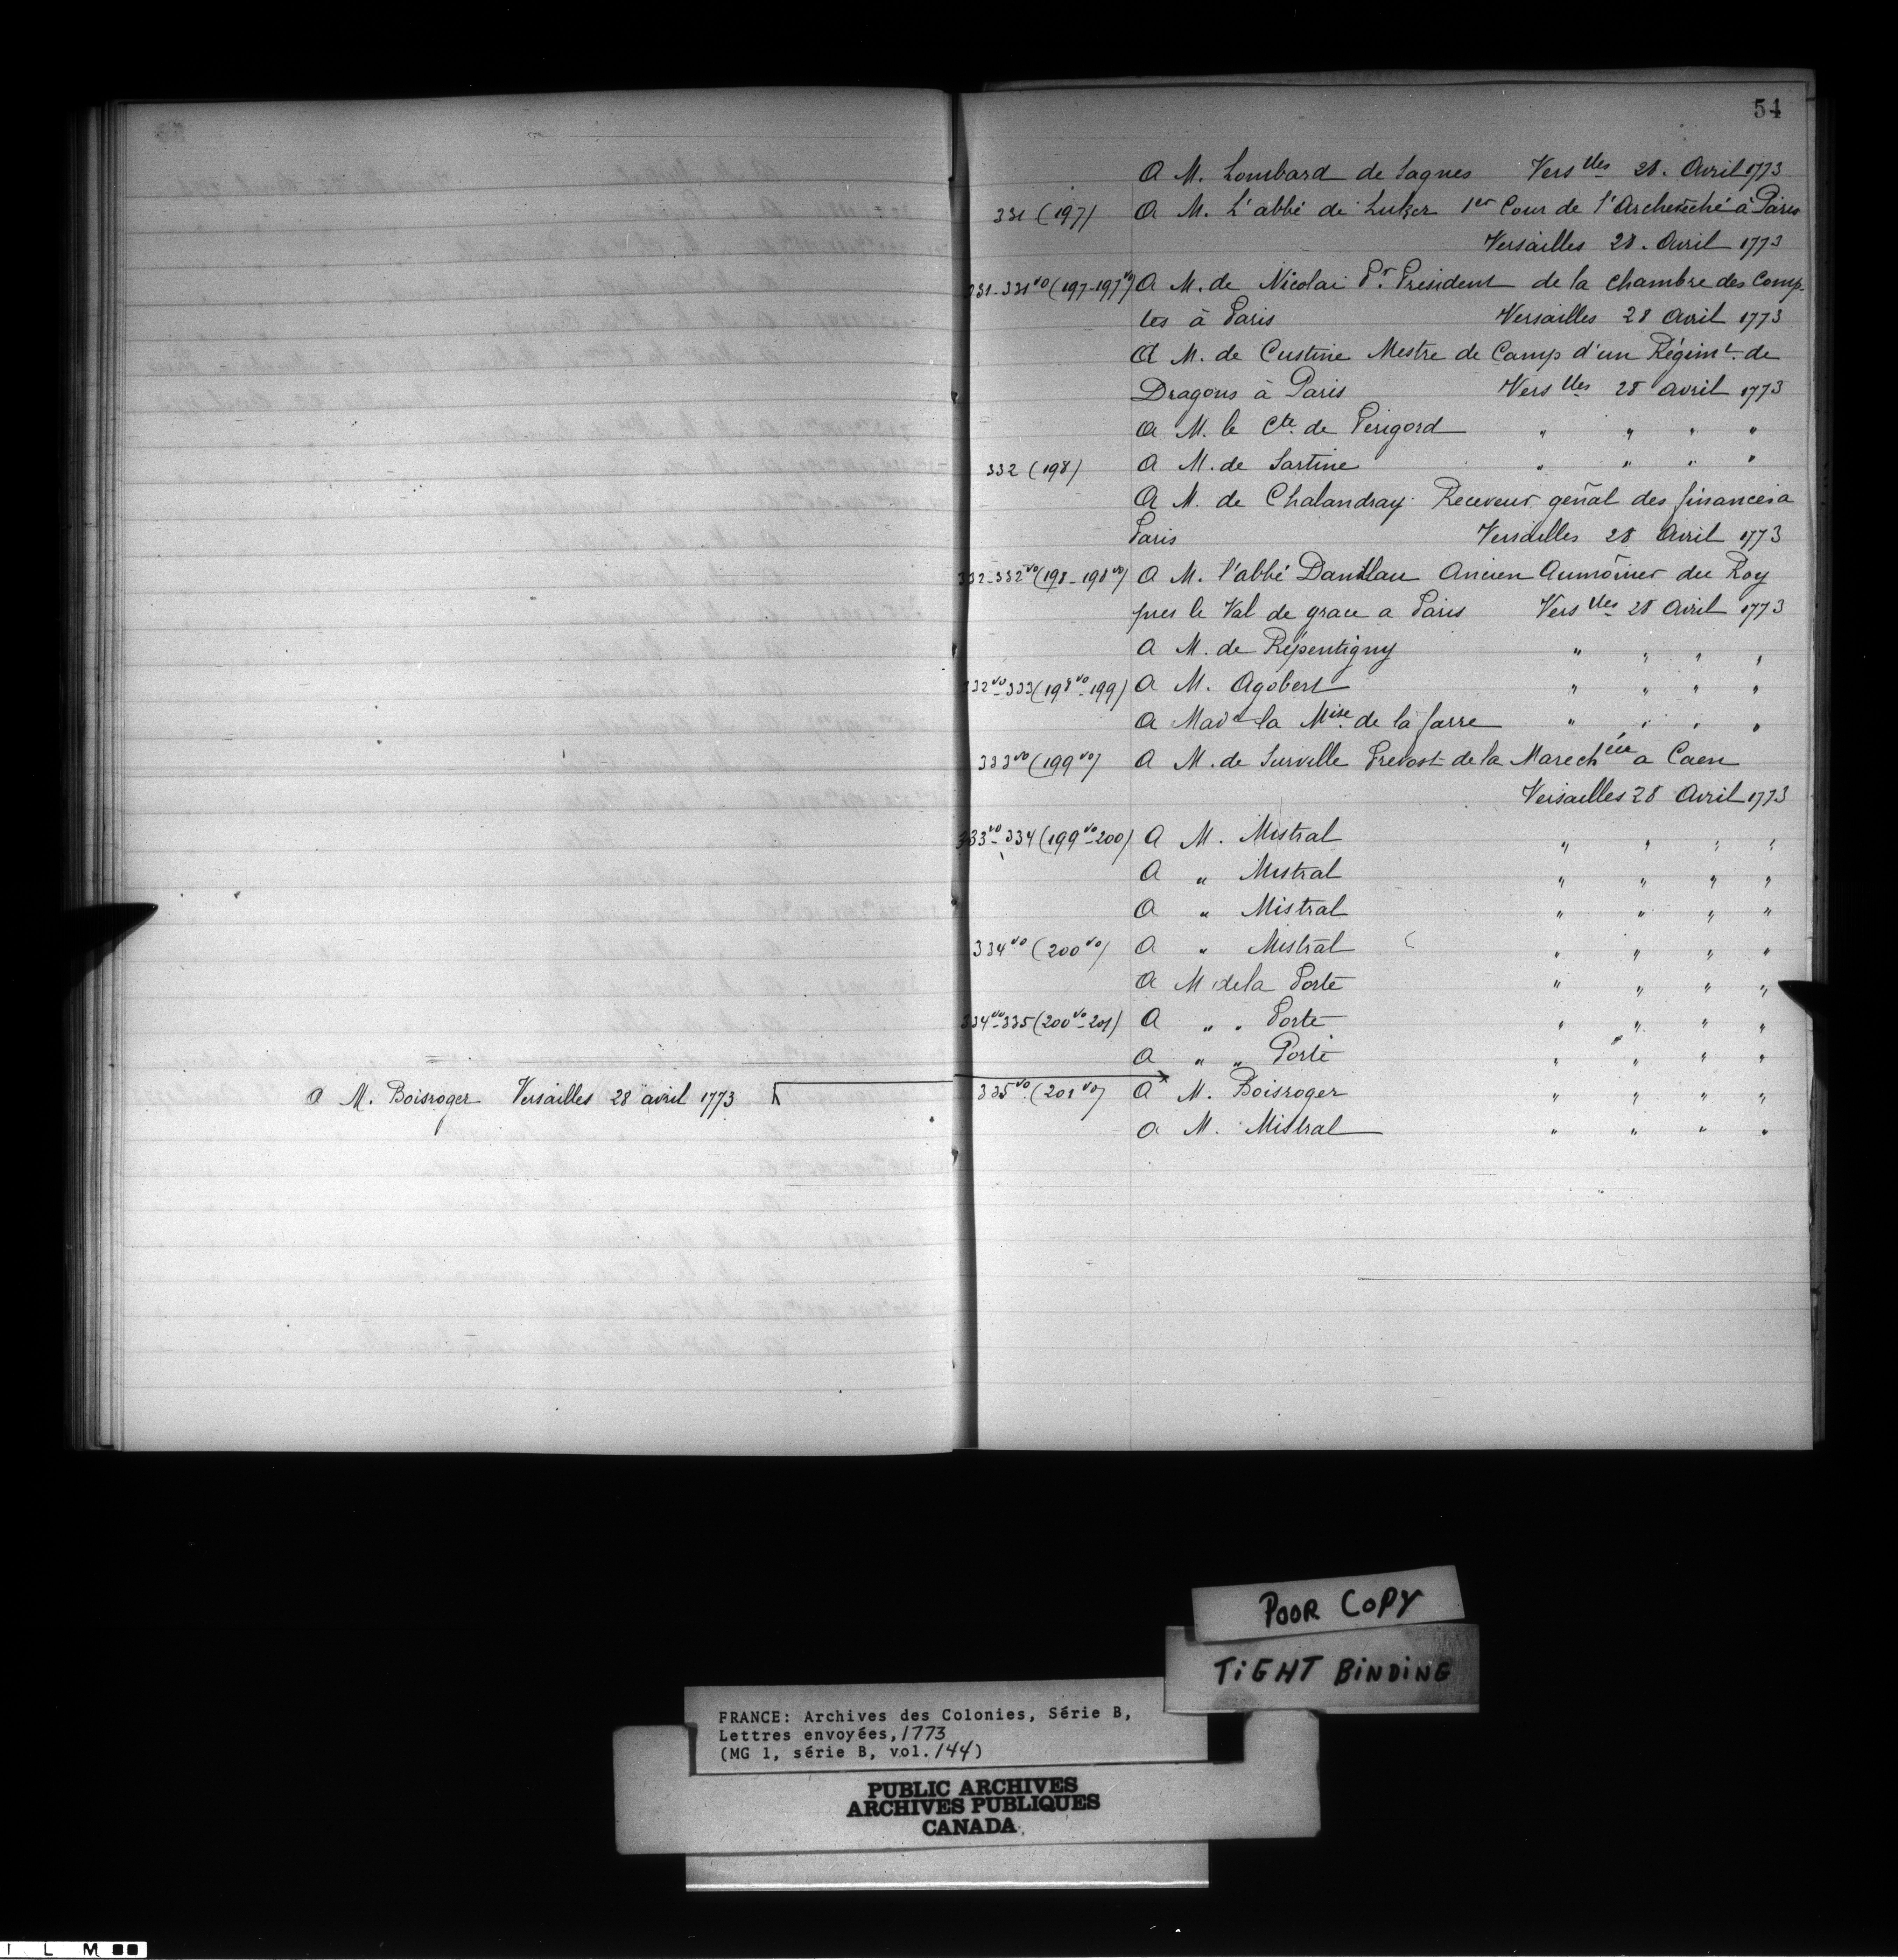 54
A M. Lombard de Lagnes Vers lles 28. Avril 1773
331 (197) A M. L'abbé de Luker 1er Cour de l'Archevêché à Paris
Versailles 28. Avril 1773
331-331vo (197-197vo) A M. de Nicolai Pr. President de la chambre des Comp-
tes à Paris Versailles 28 Avril 1773
A M. de Custine Mestre de Camp d'un Régimt. de
Dragons à Paris Vers lles 28 avril 1773
A M. le Cte. de Périgord " " " "
332 (198) A M. de Sartine " " " "
A M. de Chalandray Receveur genal des finances a
Paris Versailles 28 Avril 1773
332-332vo (198-198vo) A M. l'abbé Danillau Ancien Aumônier du Roy
pres le Val de grace a Paris Vers lles 28 Avril 1773
A M. de Répentigny " " " "
332vo-333 (198vo-199) A M. Agobert " " " "
A Made la Mise. de la farre " " " "
333vo (199vo) A M. de Surville Prevost de la Marechée a Caen
Versailles 28 Avril 1773
333vo-334 (199vo-200) A M. Mistral " " " "
A " Mistral " " " "
A " Mistral " " " "
334vo (200vo) A " Mistral " " " "
A M de la Porte " " " "
334vo-335 (200vo-201) A " " Porte " " " "
A " " Porte " " " "
A M. Boisroger Versailles 28 avril 1773
335vo. (201vo) A M. Boisroger " " " "
A M. Mistral " " " "
POOR COPY
TIGHT BINDING
FRANCE: Archives des Colonies, Série B,
Lettres envoyées, 1773
(MG 1, série B, vol. 144)
PUBLIC ARCHIVES
ARCHIVES PUBLIQUES
CANADA
I L M